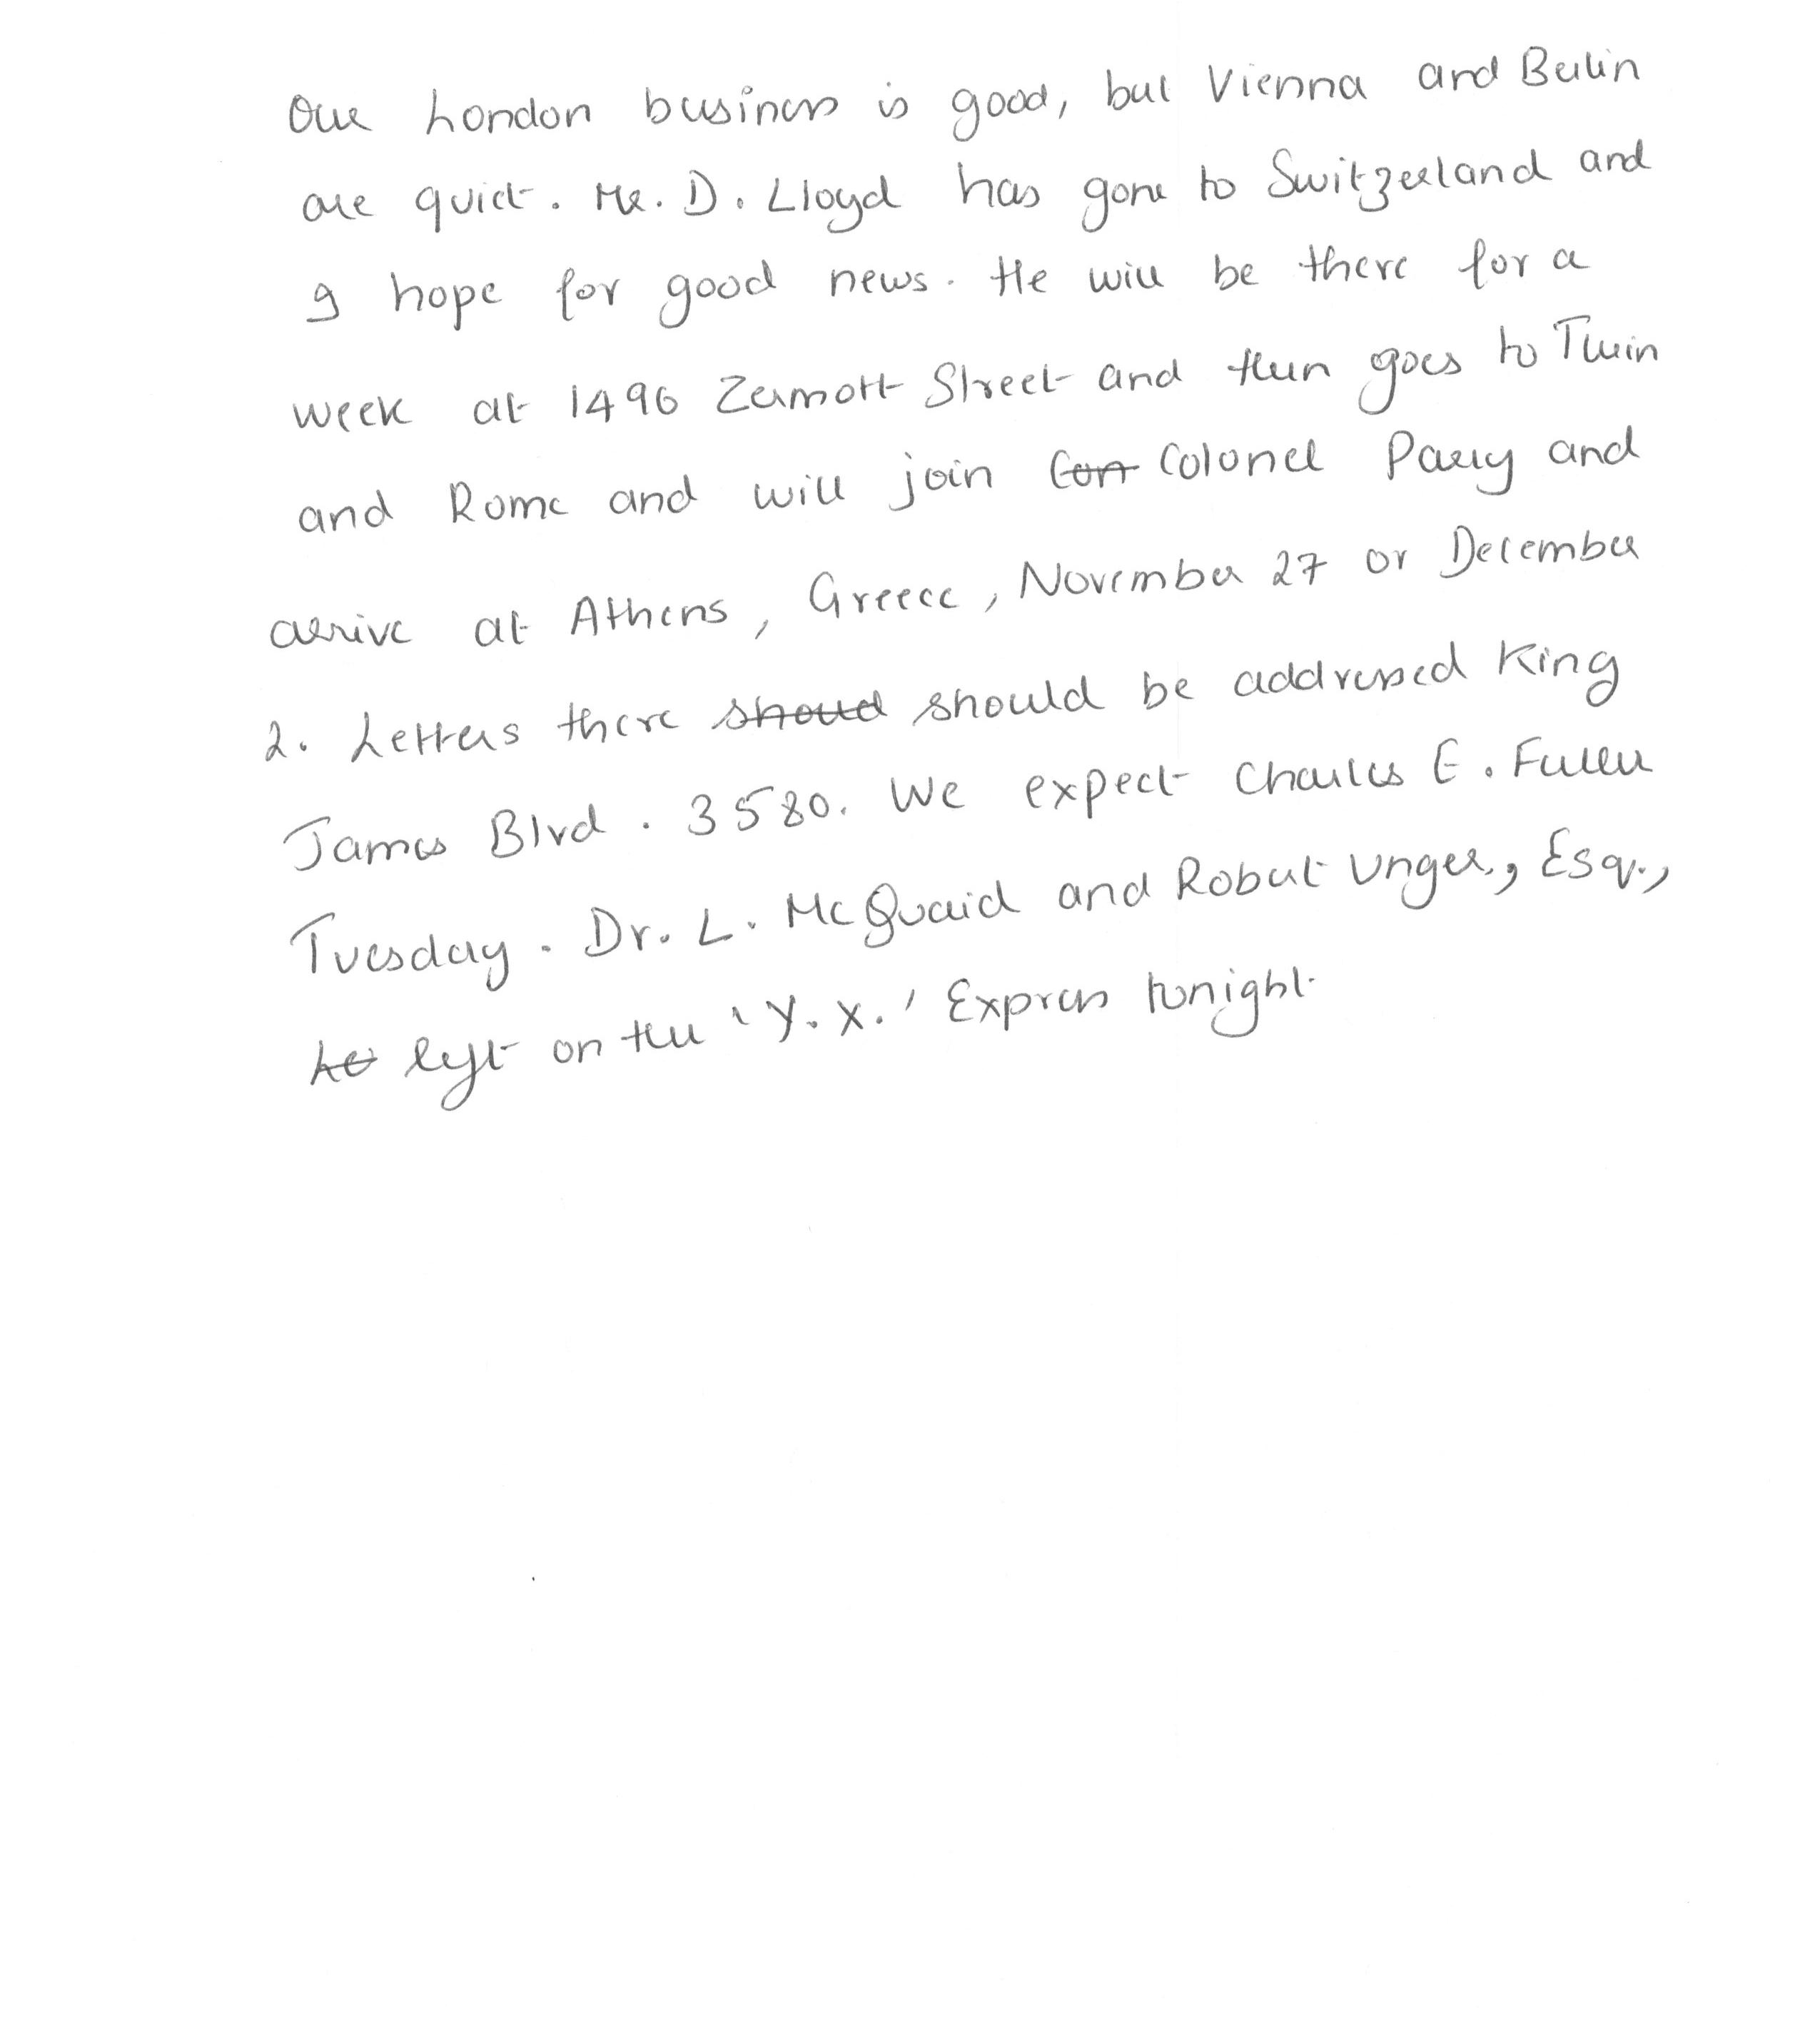 Our London business is good, but Vienna and Berlin
are quiet. Mr. D. Lloyd has gone to Switzerland and
I hope for good news. He will be there for a
week at 1496 Zermott Street and then goes to Turin
and Rome and will join Colonel Parry and
arrive at Athens, Greece, November 27 or December
2. Letters there should be addressed King
James Blvd. 3580. We expect Charles E. Fuller
Tuesday. Dr. L. McQuaid and Robert Unger., Esq.,
left on the 'Y.X.' Express tonight.